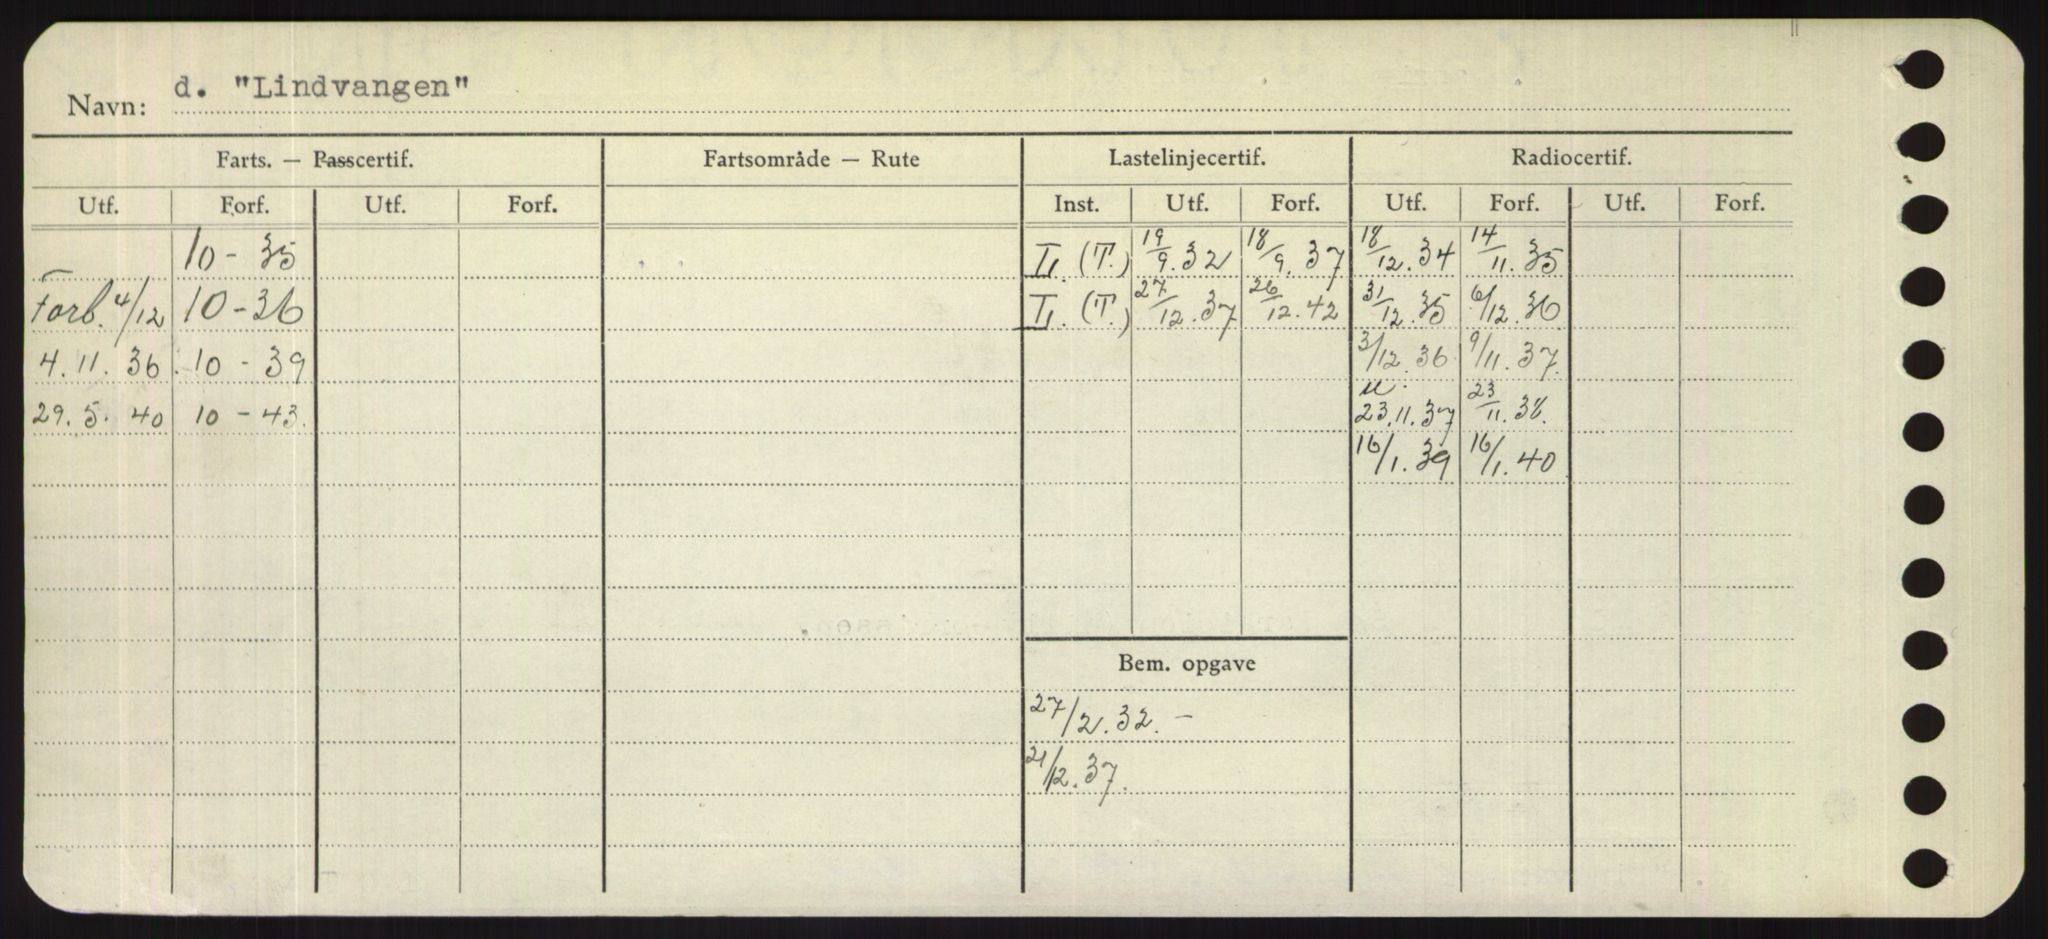 Navn: d. "Lindvangen"
Farts. — Passcertif. Fartsområde — Rute Lastelinjecertif. Radiocertif.
Utf. Forf. Utf. Forf. Inst. Utf. Forf. Utf. Forf. Utf. Forf.
10 - 35 (T.) 19/9.32 18/9.37 18/12.34 14/11.35
Forb. 4/12 10 - 36 (T.) 27/12.37 26/12.42 31/12.35 6/12.36
4.11.36. 10 - 39 3/12.36 9/11.37.
29.5.40 10 - 43. 23.11.37 23/11.38.
16/1.39 16/1.40
Bem. opgave
27/2.32. -
21/12.37.